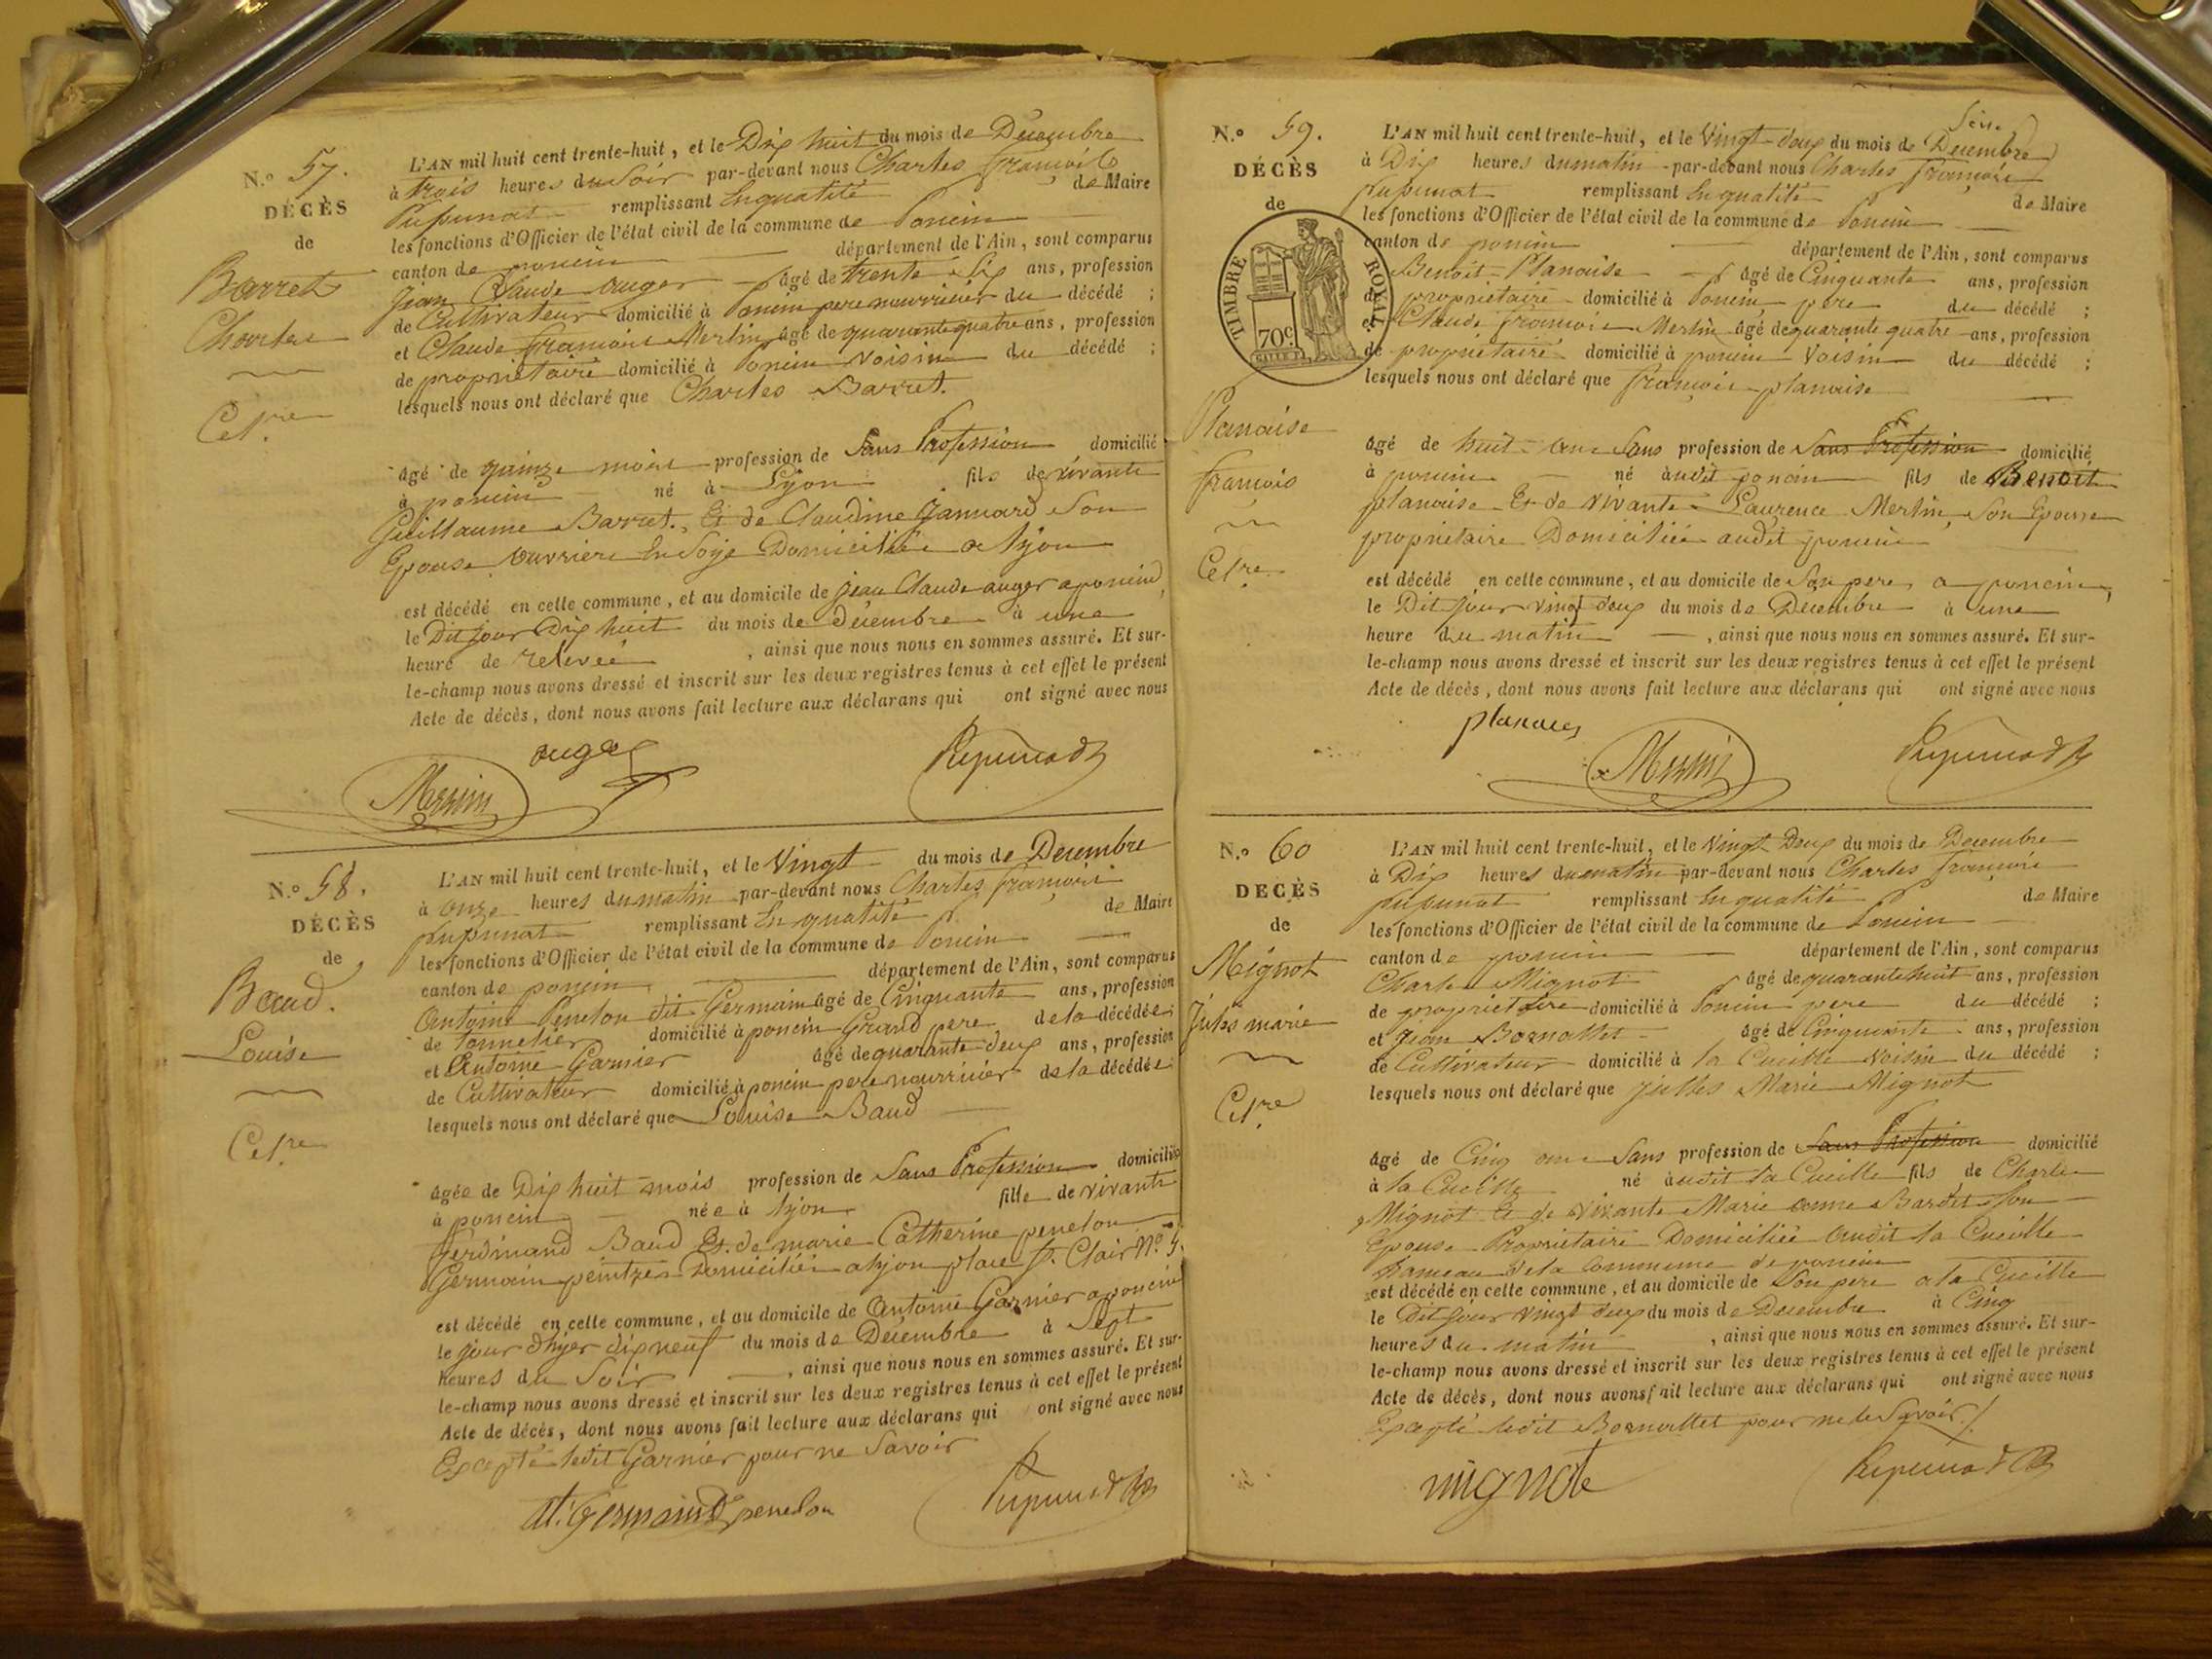 N.o 57.
DÉCÈS
de
Barret
Charles
Cel.re
L'AN mil huit cent trente-huit, et le Dix huit du mois de Décembre
à trois heures du Soir par-devant nous Charles françois
Pupunat remplissant En qualité de Maire
les fonctions d'Officier de l'état civil de la commune de Poncin
canton de poncin département de l'Ain, sont comparus
Jean Claude auger âgé de trente Six ans, profession
de Cultivateur domicilié à Poncin pere nourricier du décédé ;
et Claude françois Merlin âgé de quarante quatre ans, profession
de propriétaire domicilié à Poncin Voisin du décédé ;
lesquels nous ont déclaré que Charles Barret.
âgé de quinze mois profession de Sans Profession domicilié
à poncin né à Lyon fils de vivante
Guillaume Barret. Et de Claudine Jannard Son
Epouse ouvriere En Soye Domiciliée a lyon
est décédé en cette commune, et au domicile de Jean Claude auger a poncin
le Dit jour Dix huit du mois de décembre à une
heure de relevée , ainsi que nous nous en sommes assuré. Et sur-
le-champ nous avons dressé et inscrit sur les deux registres tenus à cet effet le présent
Acte de décès, dont nous avons fait lecture aux déclarans qui ont signé avec nous
auger
Merlin Pupunat
N.o 58.
DÉCÈS
de
Baud.
Louise
Cel.re
L'AN mil huit cent trente-huit, et le Vingt du mois de Decembre
à onze heures du matin par-devant nous Charles françois
pupunat remplissant En qualité de Maire
les fonctions d'Officier de l'état civil de la commune de Poncin
canton de poncin département de l'Ain, sont comparus
Antoine Penelon dit Germain âgé de Cinquante ans, profession
de Tonnelier domicilié à poncin Grand pere de la décédée
et Antoine Garnier âgé de quarante deux ans, profession
de Cultivateur domicilié à poncin pere nourricier de la décédée
lesquels nous ont déclaré que Louise Baud
âgée de Dix huit mois profession de Sans Profession domicilié
à poncin née à lyon fille de vivante
ferdinand Baud Et de marie Catherine penelon
Germain peintre Domiciliés a lyon place St. Clair No. 5.
est décédé en cette commune, et au domicile de Antoine Garnier a poncin
le jour d'hyer dix neuf du mois de Décembre à Sept
heures du Soir , ainsi que nous nous en sommes assuré. Et sur-
le-champ nous avons dressé et inscrit sur les deux registres tenus à cet effet le présent
Acte de décès, dont nous avons fait lecture aux déclarans qui ont signé avec nous
Excepté ledit Garnier pour ne Savoir
germain penelon Pupunat
N.o 59.
DÉCÈS
de
TIMBRE ROYAL
70c
Planaise
françois
Cel.re
L'AN mil huit cent trente-huit, et le Vingt deux du mois de Decembre
à Dix heures du matin par-devant nous Charles françois
pupunat remplissant En qualité de Maire
les fonctions d'Officier de l'état civil de la commune de Poncin
canton de poncin département de l'Ain, sont comparus
Benoit Planaise âgé de Cinquante ans, profession
de propriétaire domicilié à Poncin pere du décédé ;
et Claude françois Merlin âgé de quarante quatre ans, profession
de propriétaire domicilié à poncin Voisin du décédé ;
lesquels nous ont déclaré que françois planaise
âgé de huit ans Sans profession de Sans Profession domicilié
à poncin né àudit poncin fils de Benoit
planaise Et de vivante Laurence Merlin Son Epouse
propriétaire Domiciliée audit poncin
est décédé en cette commune, et au domicile de Son pere a poncin,
le Dit jour vingt deux du mois de Decembre à une
heure du matin , ainsi que nous nous en sommes assuré. Et sur-
le-champ nous avons dressé et inscrit sur les deux registres tenus à cet effet le présent
Acte de décès, dont nous avons fait lecture aux déclarans qui ont signé avec nous
Merlin Pupunat
N.o 60
DÉCÈS
de
Mignot
Jules marie
Cel.re
L'AN mil huit cent trente-huit, et le Vingt Deux du mois de Decembre
à Dix heures du matin par-devant nous Charles françois
pupunat remplissant En qualité de Maire
les fonctions d'Officier de l'état civil de la commune de Poncin
canton de poncin département de l'Ain, sont comparus
Charles Mignot âgé de quarante huit ans, profession
de proprietaire domicilié à Poncin pere du décédé ;
et Jean Bornattet âgé de Cinquante ans, profession
de Cultivateur domicilié à la Cueille Voisin du décédé ;
lesquels nous ont déclaré que Julles Marie Mignot
âgé de Cinq ans Sans profession de Sans Profession domicilié
à la Cueille né àudit la Cueille fils de Charles
Mignot Et de vivante Marie anne Bardet Son
Epouse Propriétaire Domiciliée audit la Cueille
hameau de la Commune de poncin
est décédé en cette commune, et au domicile de Son pere a la Cueille
le Dit jour vingt deux du mois de Decembre à Cinq
heures du matin , ainsi que nous nous en sommes assuré. Et sur-
le-champ nous avons dressé et inscrit sur les deux registres tenus à cet effet le présent
Acte de décès, dont nous avons fait lecture aux déclarans qui ont signé avec nous
Excepté ledit Bornattet pour ne le Savoir
mignot Pupunat